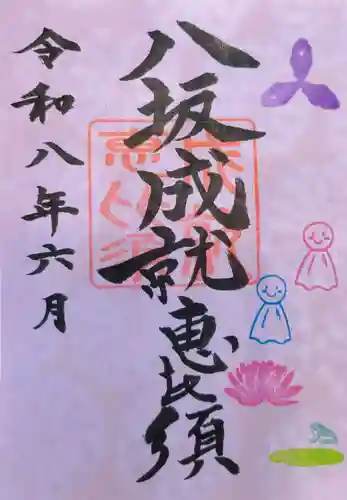 八坂成就恵比須
令和八年六月